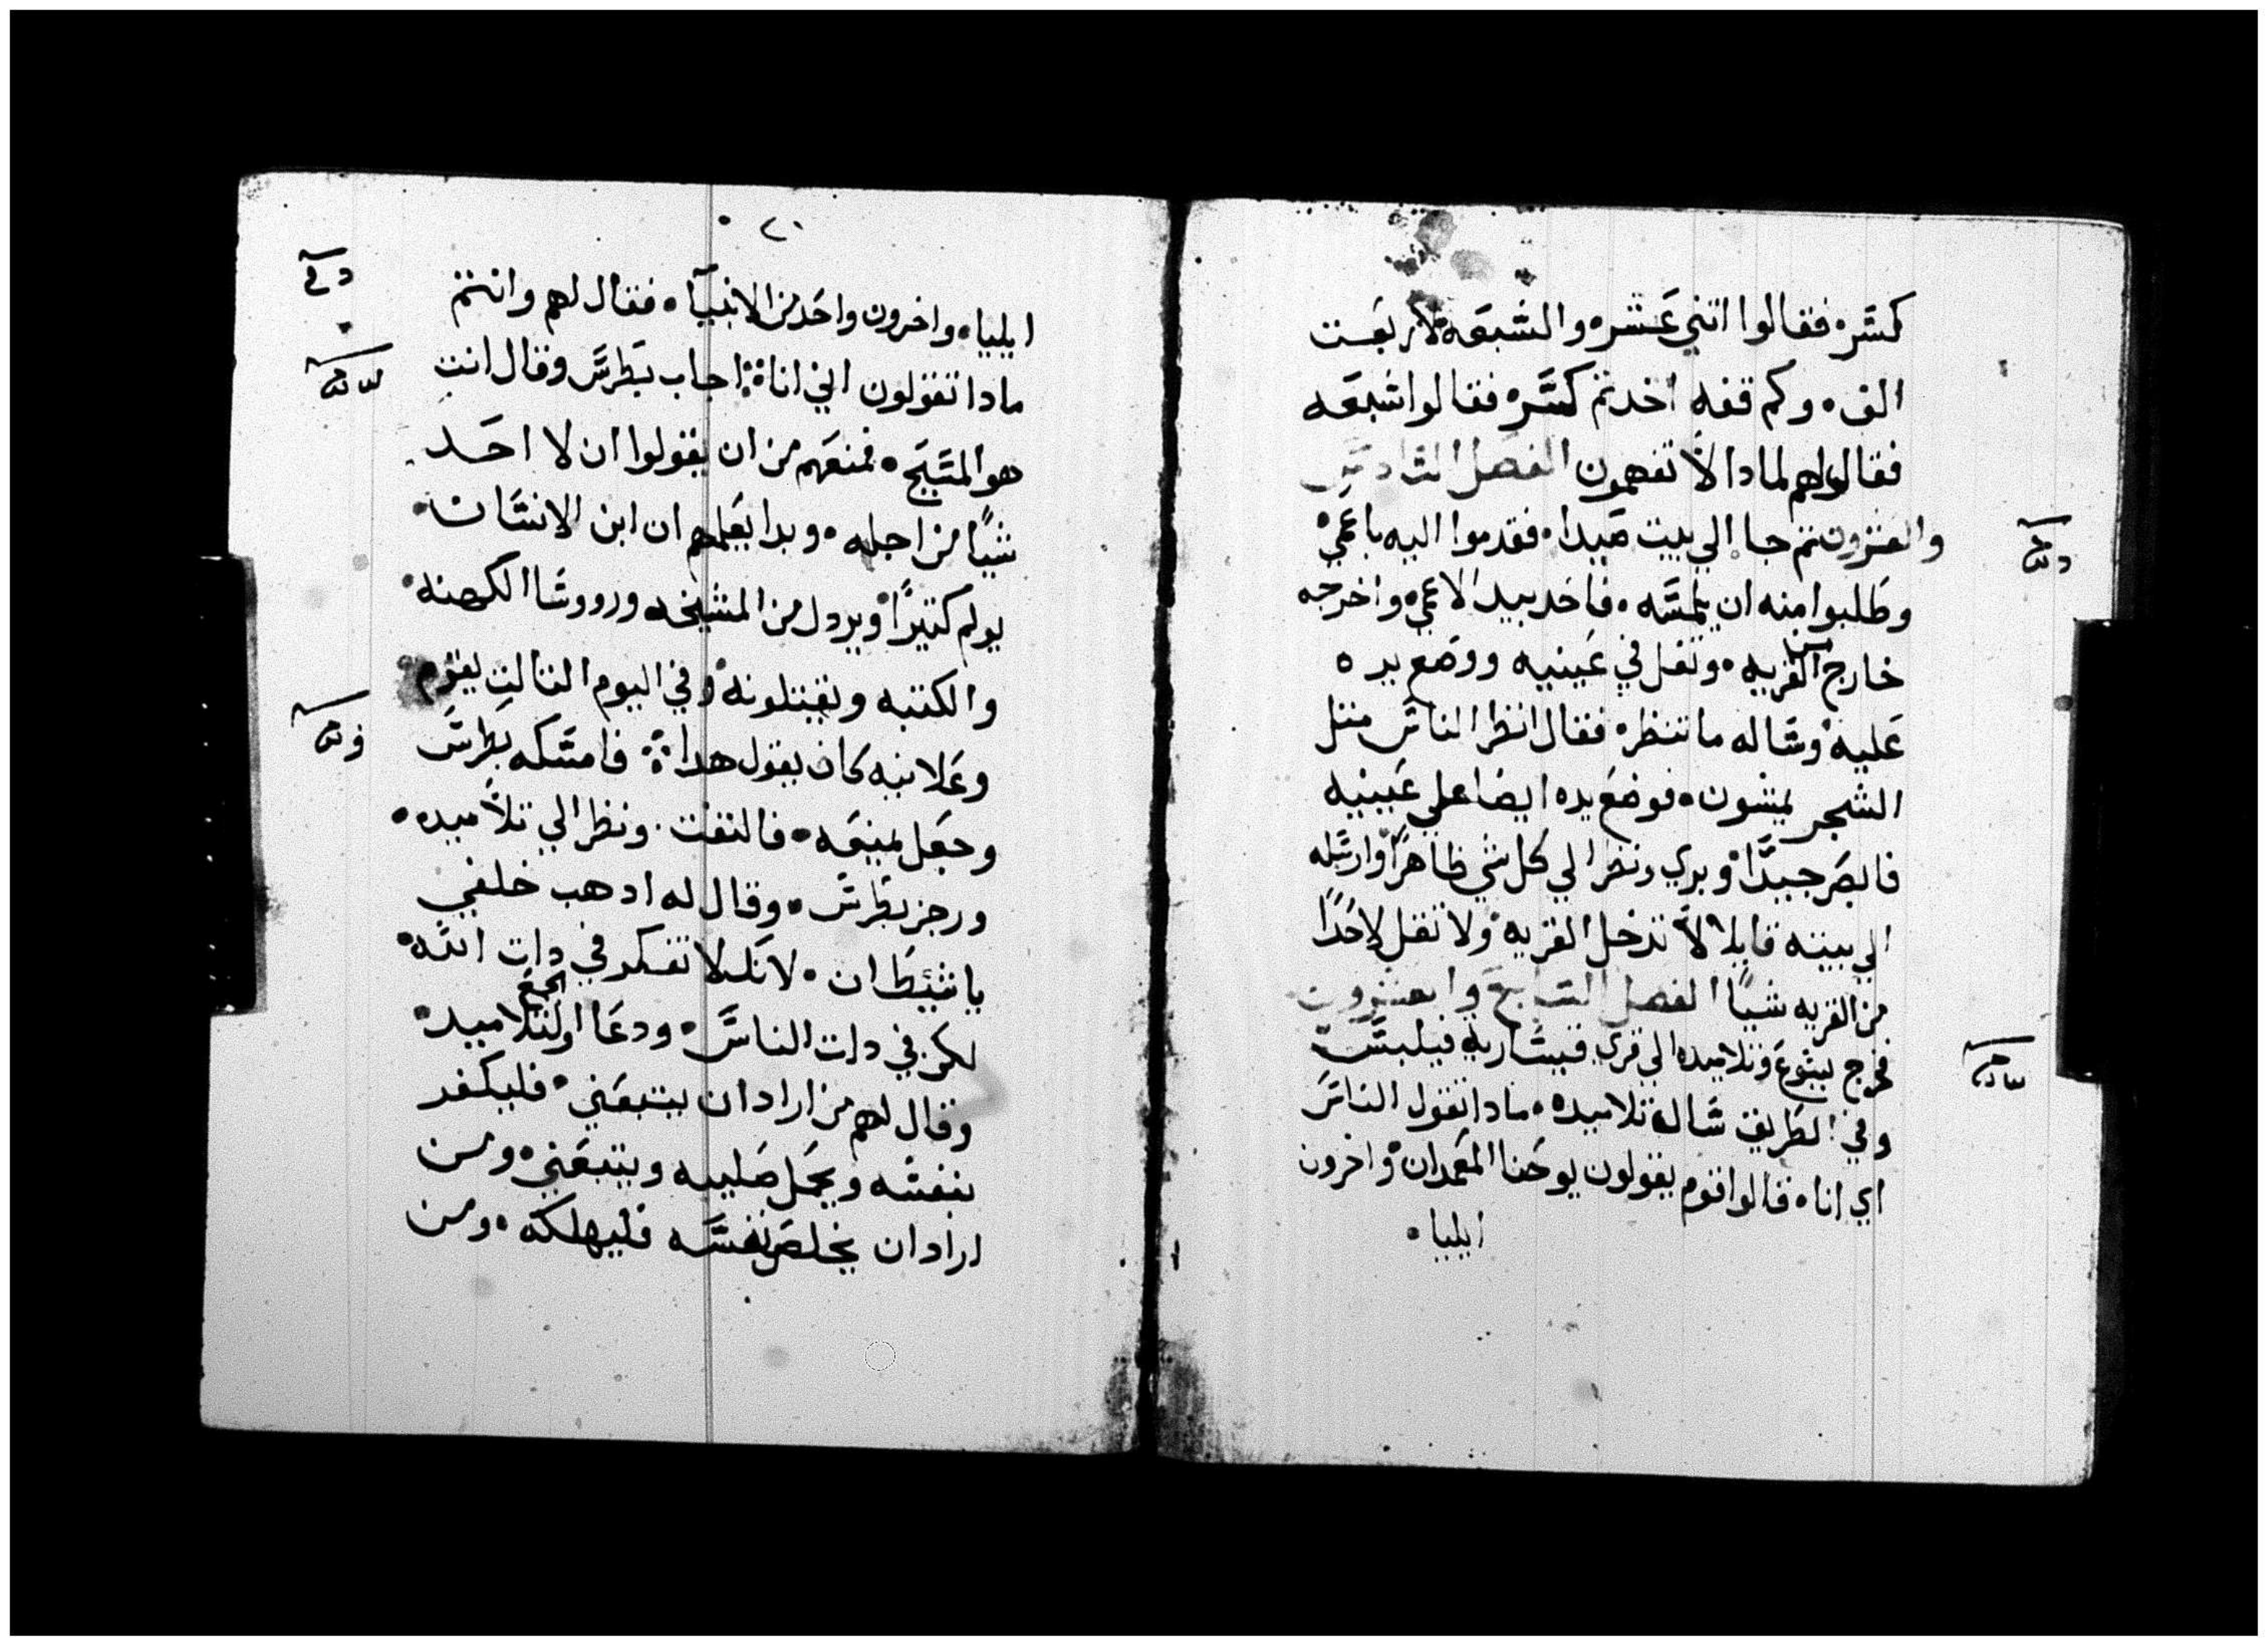 كسره فقالوا اتني عشره والسبعه لاربعت
الف وكم قفه اخدتم كسره فقالوا سبعه
فقال لهم لمادا لا تفهمون الفصل السادس
والعشرون تم جا الي بيت صيدا فقدموا اليه باعمي
وطلبوا منه ان يلمسه فاخد بيد الاعمي واخرجه
خارج القريه وتفل في عينيه ووضع يده
عليه وساله ما تنظر فقال انظر الناس متل
الشجر يمشون فوضع يده ايضا علي عينيه
فابصر جيدا وبري ونظر الي كل شي ظاهرا وارسله
الي بيته قايلا لا تدخل القريه ولا تقل لاحدا
من القريه شيا الفصل السابع والعشرون
فخرج يسوع وتلاميده الي قري قيساريه فيلبس
وفي الطريق سال تلاميده مادا تقول الناس
اي انا قالوا قوم يقولون يوحنا المعمدان واخرون
ايليا
ايليا واخرون واحد من الانبيا فقال لهم وانتم
مادا تقولون اني انا اجاب بطرس وقال انت
هو المسيح فمنعهم من ان يقولوا ان لا احد
شيا من اجله وبدا يعلمهم ان ابن الانسان
يولم كتيرا ويردل من المشيخه ورووسا الكهنه
والكتبه ويقتلونه وفي اليوم التالت يقوم
وعلانيه كان يقول هدا فامسكه بطرس
وجعل يمنعه فالتفت ونظر الي تلاميده
ورجز بطرس وقال له ادهب خلفي
يا شيطان لانك لا تفكر في دات الله
لكن في دات الناس ودعا الجمع والتلاميد
وقال لهم من اراد ان يتبعني فليكفر
بنفسه ويحمل صليبه ويتبعني ومن
اراد ان يخلص نفسه فليهلكه ومن